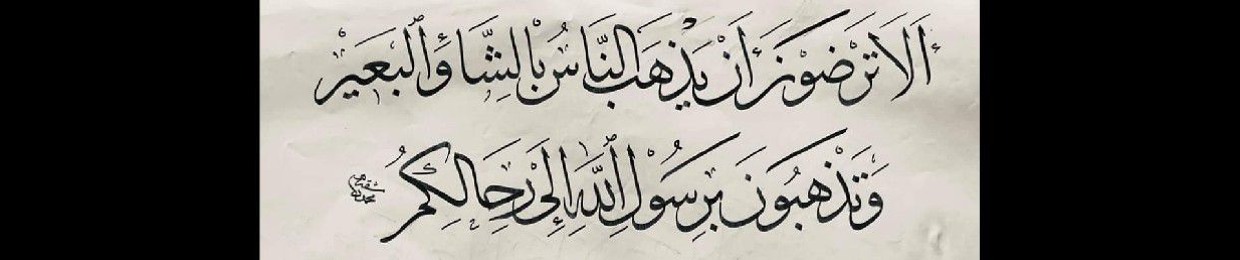 أَلَا تَرْضَوْنَ أَنْ يَذْهَبَ النَّاسُ بِالشَّاءِ وَٱلْبَعِيْرِ
وَتَذْهَبُونَ بِرَسُوْلِ ٱللَّهِ إِلَى رِحَالِكُمْ